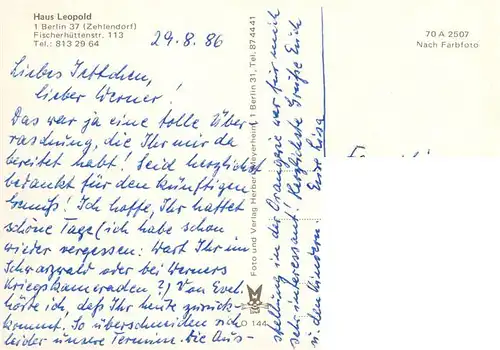 Haus Leopold
1 Berlin 37 (Zehlendorf)
Fischerhüttenstr. 113
Tel.: 813 29 64
29.8.86
70 A 2507
Nach Farbfoto
Liebes Jettchen,
lieber Werner!
Das war ja eine tolle Über-
raschung, die Ihr mir da
bereitet habt! Seid herzlichst
bedankt für den künftigen
Genuß! Ich hoffe, Ihr hattet
schöne Tage (ich habe schon
wieder vergessen: Wart Ihr im
Schwarzwald oder bei Werners
Kriegskameraden?) Von Evel
hörte ich, daß Ihr heute zurück-
kommt. So überschneiden sich
leider unsere Termine. Die Aus-
stellung in der Orangerie war für mich
sehr interessant! Herzlichste Grüße Euch
u. den Kindern. Eure Lisa
Foto und Verlag Herbert Meyerheim, 1 Berlin 31, Tel. 87 44 41
O 144